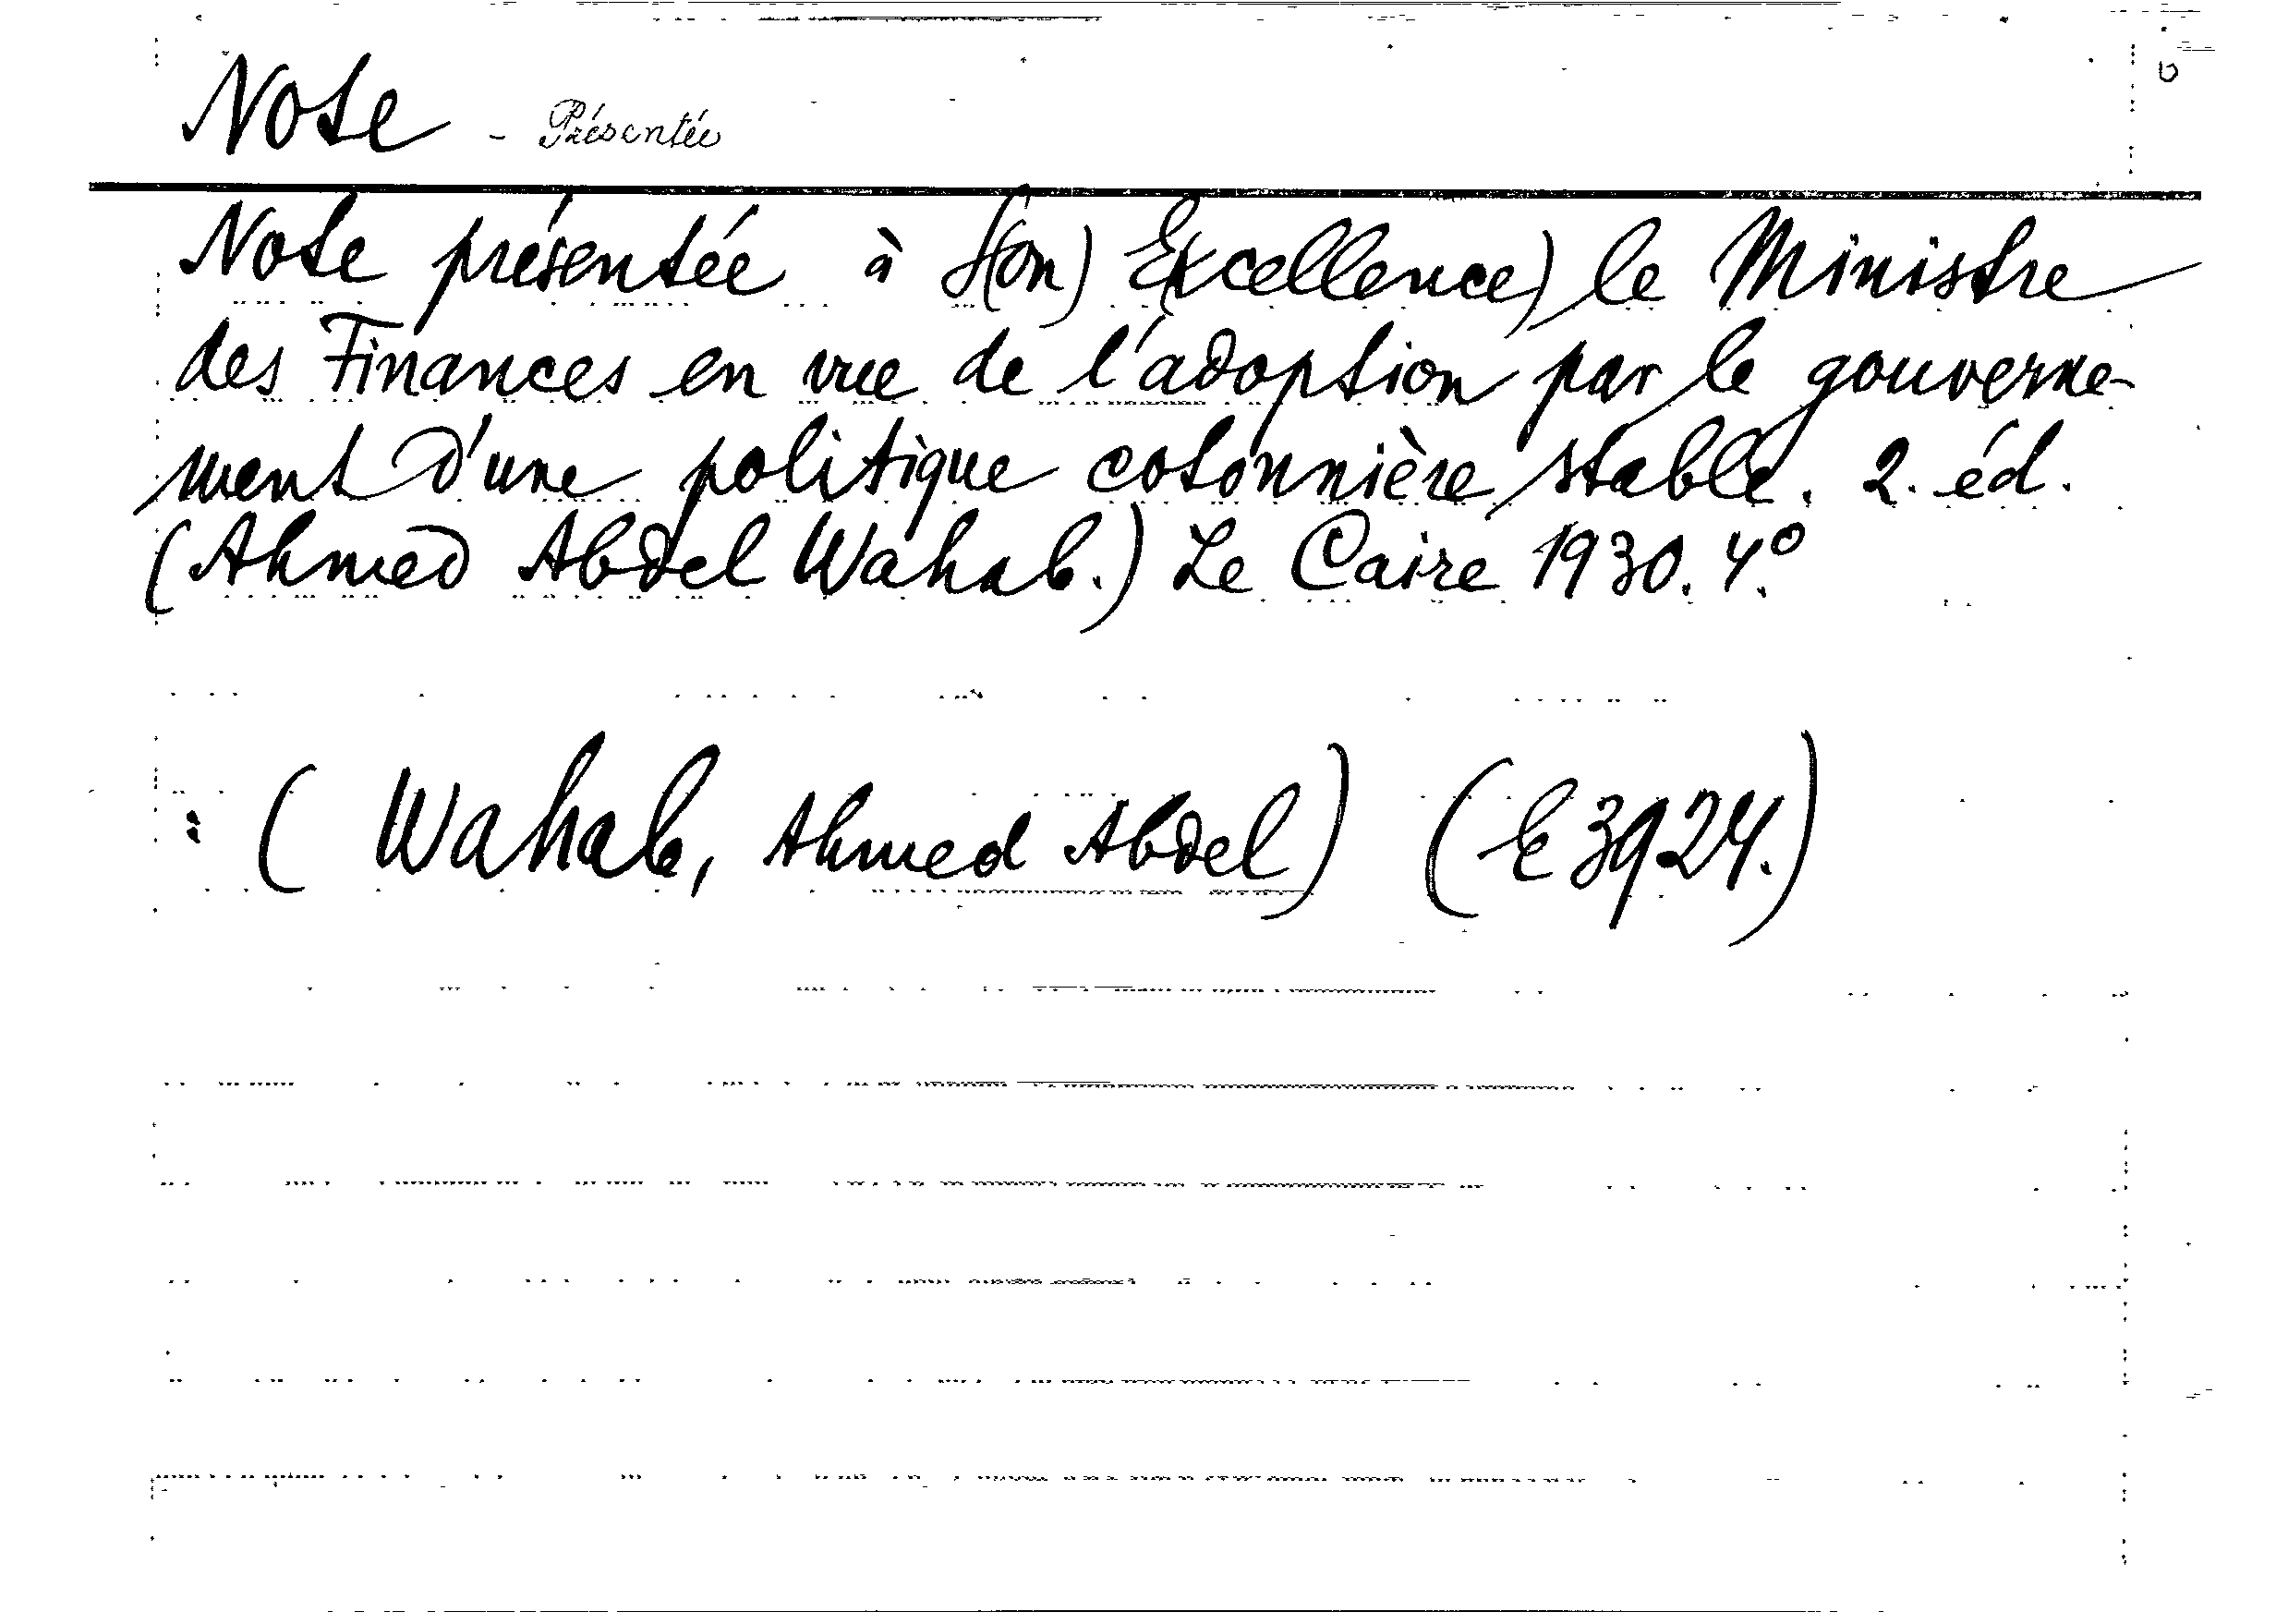 Note - Présentée
Note présentée à S(on) E(xcellence) le Ministre
des Finances en vue de l'adoption par le gouverne-
ment d'une politique cotonnière stable. 2. éd.
(Ahmed Abdel Wahab.) Le Caire 1930. 4.º
(Wahab, Ahmed Abdel) (E 3924.)